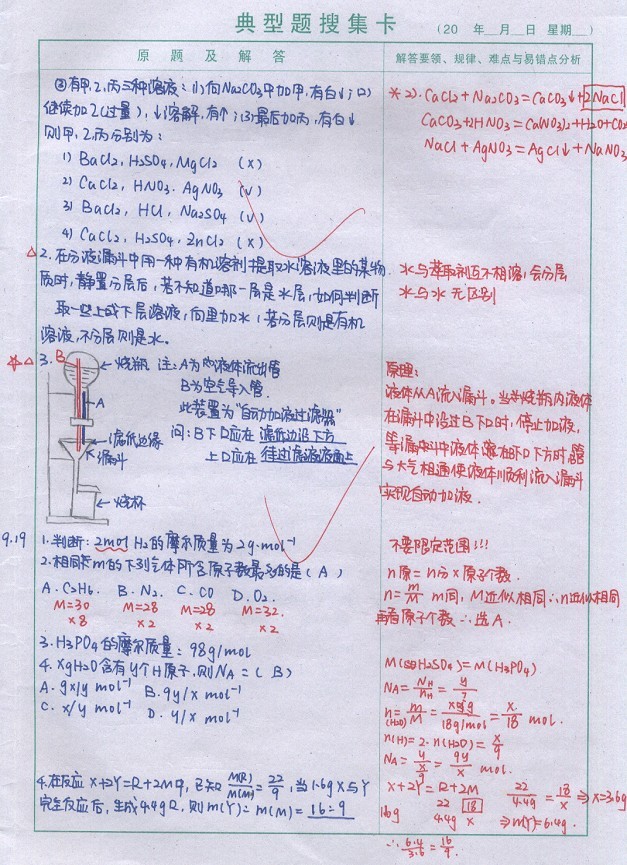 典型题搜集卡
(20 年__月__日 星期__)
原题及解答
解答要领、规律、难点与易错点分析
③有甲.乙.丙三种溶液:(1)向Na2CO3中加甲,有白↓;(2)
继续加乙(过量),↓溶解,有个;(3)最后加丙,有白↓
则甲.乙.丙分别为:
1) BaCl2, H2SO4, MgCl2 (×)
2) CaCl2, HNO3. AgNO3 (√)
3) BaCl2, HCl, Na2SO4 (√)
4) CaCl2, H2SO4, ZnCl2 (×)
※ 2). CaCl2+Na2CO3=CaCO3↓+2NaCl
CaCO3+2HNO3=Ca(NO3)2+H2O+CO2
NaCl+AgNO3=AgCl↓+NaNO3
△2.在分液漏斗中用一种有机溶剂提取水溶液里的某物
质时,静置分层后,若不知道哪一层是水层,如何判断
取一些上或下层溶液,向里加水,若分层则是有机
溶液,不分层则是水。
水与萃取剂互不相溶,会分层
水与水 无区别
☆△3.
B
A
烧瓶
滤纸边缘
漏斗
烧杯
注:A为 液体流出管
B为空气导入管.
此装置为"自动加液过滤器"
问:B下口应在 滤纸边沿下方
上口应在 待过滤液液面上
原理:
液体从A流入漏斗。当 烧瓶内液体
在漏斗中没过B下口时,停止加液,
等漏斗中液体 在B下口下方时,
与大气相通使液体顺利流入漏斗
实现自动加液.
9.19 1.判断:2mol H2的摩尔质量为2g·mol⁻¹
不要限定范围!!!
2.相同 m的下列气体所含原子数最多的是(A)
A. C2H6. B. N2. C. CO D. O2.
M=30 M=28 M=28 M=32.
×8 ×2 ×2 ×2
n原=n分×原子个数.
n=m/M m同, M近似相同∴n近似相同
再看原子个数∴选A.
3. H3PO4的摩尔质量: 98g/mol
M(H2SO4)=M(H3PO4)
4. xgH2O含有y个H原子,则NA=(B)
A. 9x/y mol⁻¹ B. 9y/x mol⁻¹
C. x/y mol⁻¹ D. y/x mol⁻¹
NA=NH/nH=y/?
n(H2O)=m/M=xg/18g/mol=x/18 mol.
n(H)=2·n(H2O)=x/9
NA=y/(x/9)=9y/x mol.
4.在反应 X+2Y=R+2M中,已知M(R)/M(M)=22/9,当1.6g X与Y
完全反应后,生成4.4g R.则m(Y):m(M)=16:9
X+2Y=R+2M
22 18
1.6g 4.4g x
22/4.4g=18/x ⇒x=3.6g
⇒m(Y)=6.4g.
∴6.4/3.6=16/9.